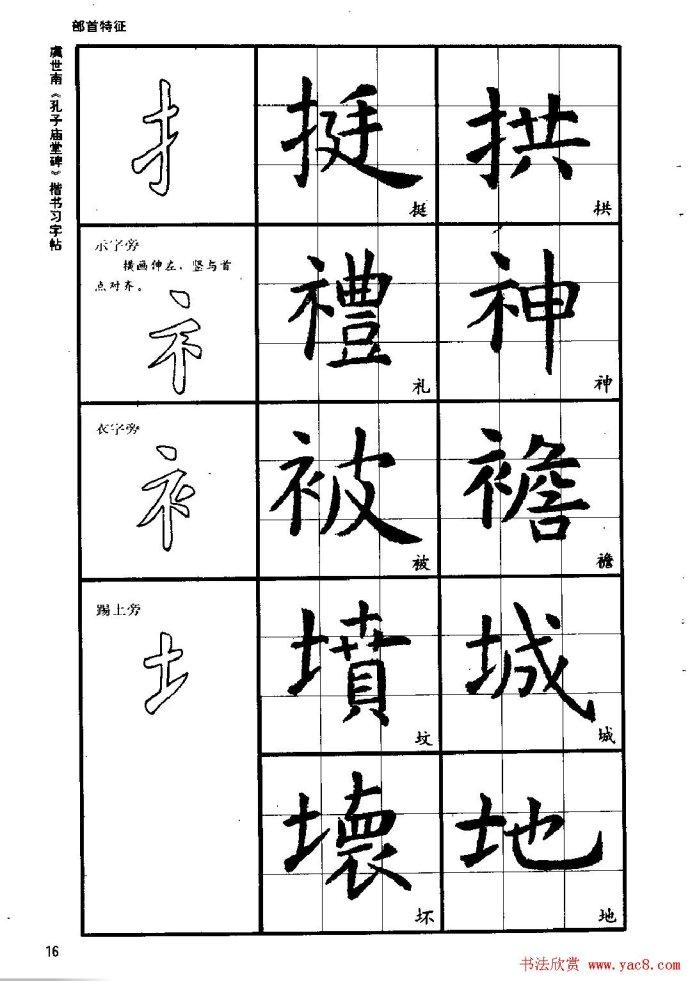 部首特征
虞世南《孔子庙堂碑》楷书习字帖
挺 拱
挺 拱
示字旁
横画伸左,竖与首
点对齐。
禮 神
礼 神
衣字旁
被 襜
被 襜
踢土旁
墳 城
坟 城
壞 地
坏 地
16
书法欣赏 www.yac8.com